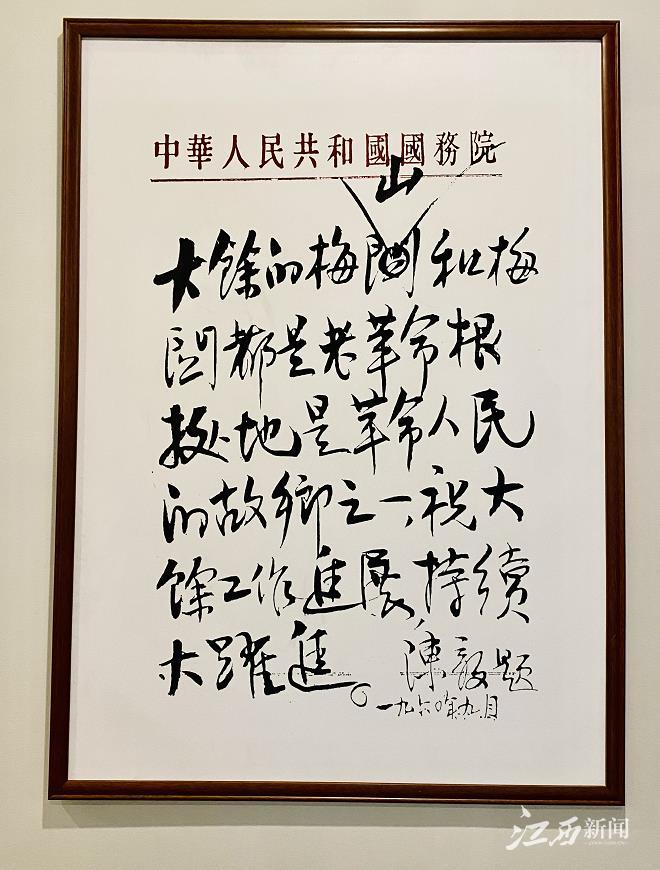 中華人民共和國國務院
山
大餘的梅關和梅
關都是老革命根
據地是革命人民
的故鄉之一,祝大
餘工作進展持續
大躍進。陳毅題
一九六〇年九月
江西新闻